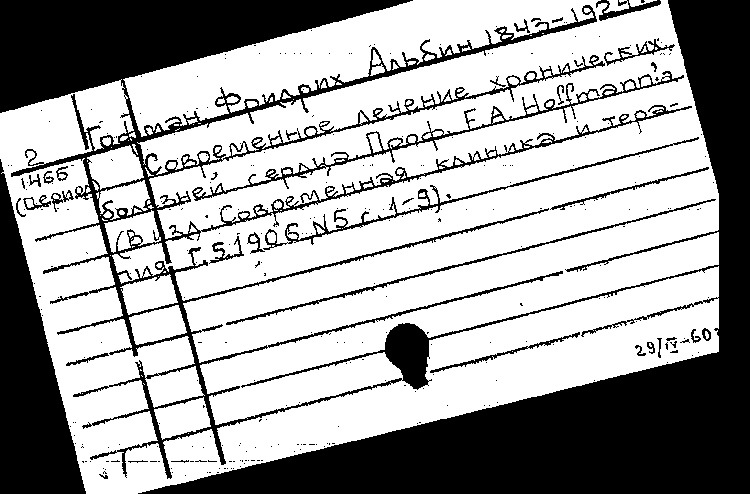 Гофман, Фридрих Альбин, 1843-1924.
2
1465
(Период)
Современное лечение хронических
болезней сердца. Проф. F.A. Hoffmann'a
(В изд: Современная клиника и тера-
пия. Г.5.1906, N5 с. 1-9).
29/IV-60г